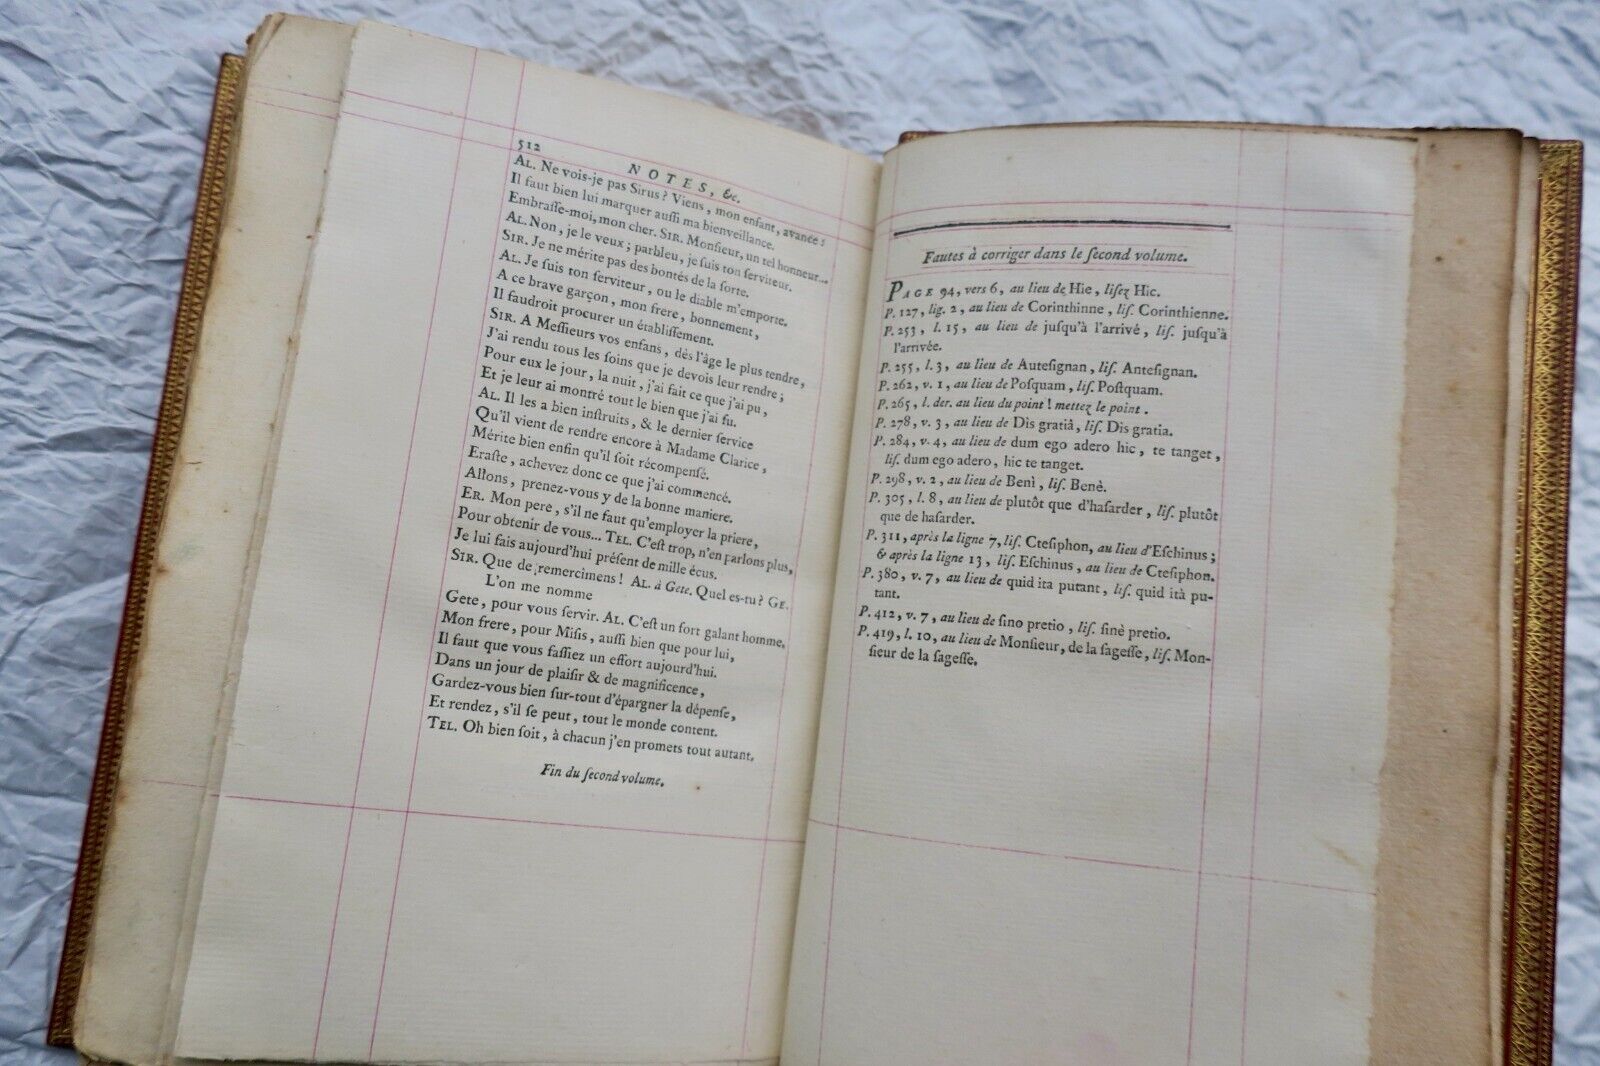 512 NOTES, &c.
AL. Ne vois-je pas Sirus? Viens, mon enfant, avance:
Il faut bien lui marquer auſſi ma bienveillance.
Embraſſe-moi, mon cher. SIR. Monſieur, un tel honneur...
AL. Non, je le veux; parbleu, je ſuis ton ſerviteur.
SIR. Je ne mérite pas des bontés de la ſorte.
AL. Je ſuis ton ſerviteur, ou le diable m'emporte.
A ce brave garçon, mon frere, bonnement,
Il faudroit procurer un établiſſement.
SIR. A Meſſieurs vos enfans, dès l'âge le plus tendre,
J'ai rendu tous les ſoins que je devois leur rendre;
Pour eux le jour, la nuit, j'ai fait ce que j'ai pu,
Et je leur ai montré tout le bien que j'ai ſu.
AL. Il les a bien inſtruits, & le dernier ſervice
Qu'il vient de rendre encore à Madame Clarice,
Mérite bien enfin qu'il ſoit récompenſé.
Eraſte, achevez donc ce que j'ai commencé.
Allons, prenez-vous y de la bonne maniere.
ER. Mon pere, s'il ne faut qu'employer la priere,
Pour obtenir de vous... TEL. C'eſt trop, n'en parlons plus,
Je lui fais aujourd'hui préſent de mille écus.
SIR. Que de remercimens! AL. à Gete. Quel es-tu? GE.
L'on me nomme
Gete, pour vous ſervir. AL. C'eſt un fort galant homme.
Mon frere, pour Miſis, auſſi bien que pour lui,
Il faut que vous faſſiez un effort aujourd'hui.
Dans un jour de plaiſir & de magnificence,
Gardez-vous bien ſur-tout d'épargner la dépenſe,
Et rendez, s'il ſe peut, tout le monde content.
TEL. Oh bien ſoit, à chacun j'en promets tout autant.
Fin du ſecond volume.
Fautes à corriger dans le ſecond volume.
PAGE 94, vers 6, au lieu de Hie, liſez Hic.
P. 127, lig. 2, au lieu de Corinthinne, liſ. Corinthienne.
P. 253, l. 15, au lieu de juſqu'à l'arrivé, liſ. juſqu'à
l'arrivée.
P. 255, l. 3, au lieu de Auteſignan, liſ. Anteſignan.
P. 262, v. 1, au lieu de Poſquam, liſ. Poſtquam.
P. 265, l. der. au lieu du point! mettez le point.
P. 278, v. 3, au lieu de Dis gratiâ, liſ. Dis gratia.
P. 284, v. 4, au lieu de dum ego adero hic, te tanget,
liſ. dum ego adero, hic te tanget.
P. 298, v. 2, au lieu de Benì, liſ. Benè.
P. 305, l. 8, au lieu de plutôt que d'haſarder, liſ. plutôt
que de haſarder.
P. 311, après la ligne 7, liſ. Cteſiphon, au lieu d'Eſchinus;
& après la ligne 13, liſ. Eſchinus, au lieu de Cteſiphon.
P. 380, v. 7, au lieu de quid ita putant, liſ. quid ità pu-
tant.
P. 412, v. 7, au lieu de ſino pretio, liſ. ſinè pretio.
P. 419, l. 10, au lieu de Monſieur, de la ſageſſe, liſ. Mon-
ſieur de la ſageſſe.